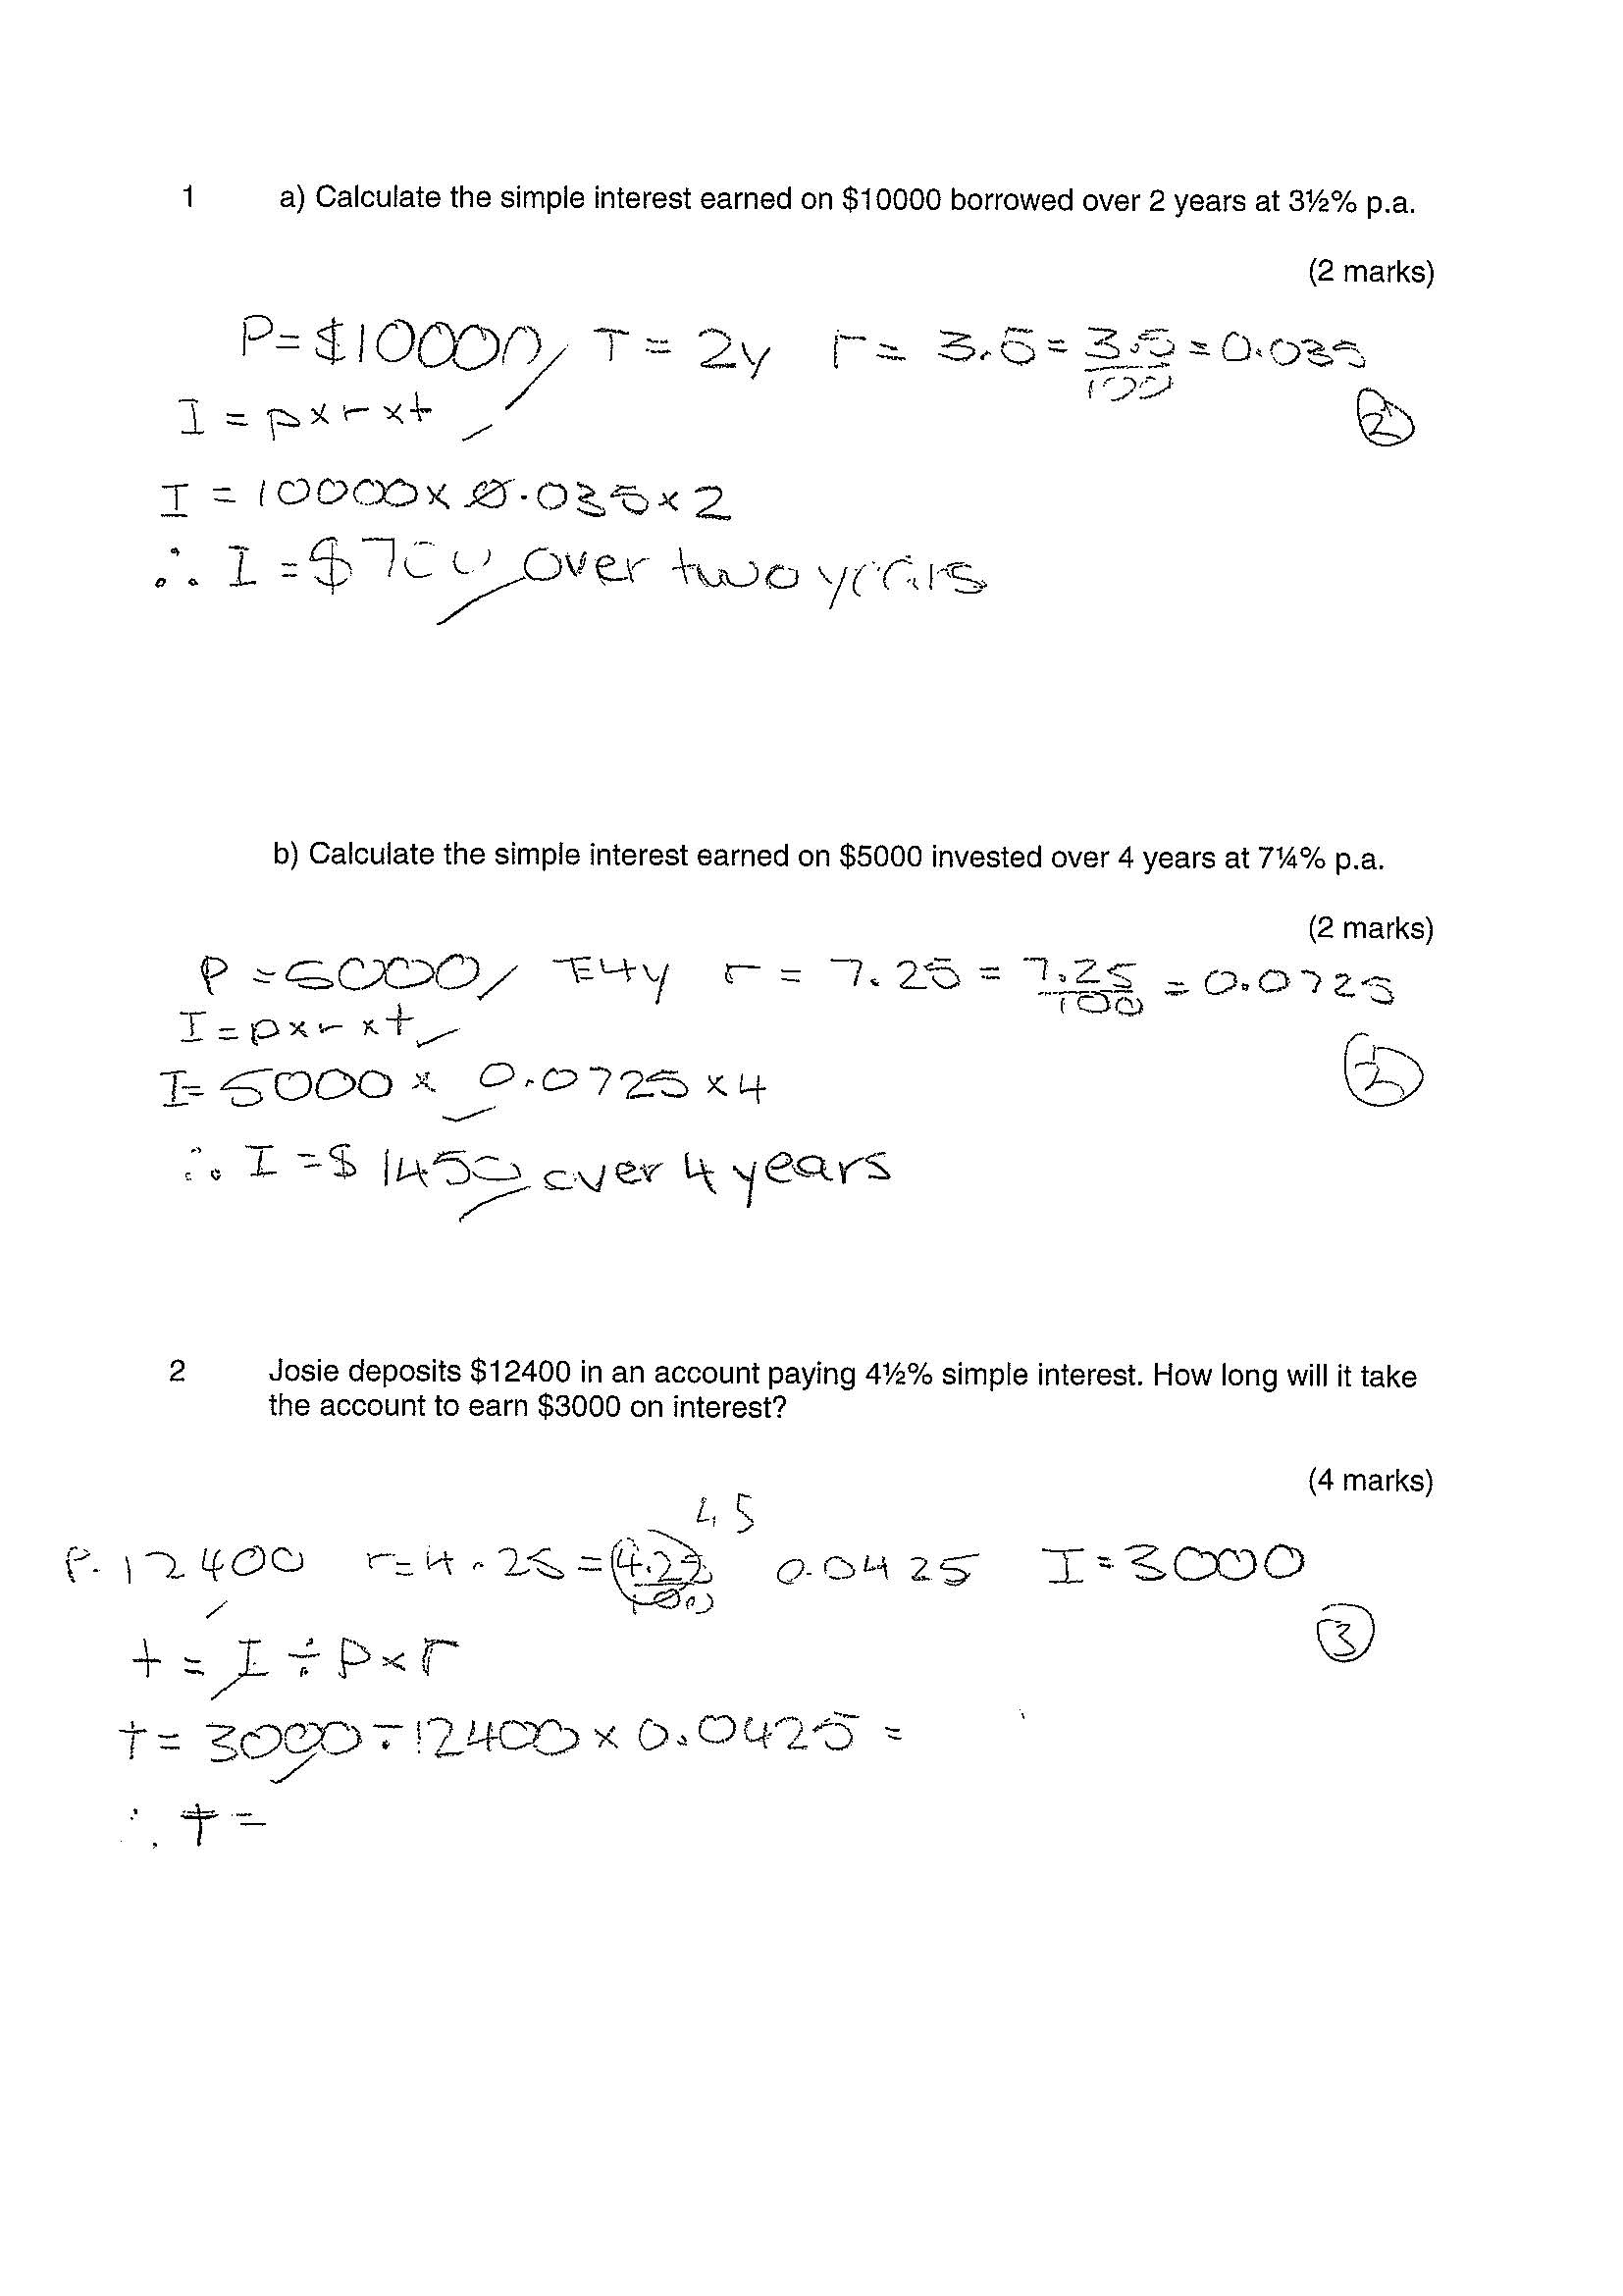 1 a) Calculate the simple interest earned on $10000 borrowed over 2 years at 3½% p.a.
(2 marks)
P=$10000 T = 2y r = 3.5 = 3.5/100 = 0.035
I = p×r×t
2
I = 10000× 0.035×2
∴ I = $700 over two years
b) Calculate the simple interest earned on $5000 invested over 4 years at 7¼% p.a.
(2 marks)
P =5000 T=4y r = 7.25 = 7.25/100 = 0.0725
I=p×r×t
2
I= 5000 × 0.0725 ×4
∴ I =$ 1450 over 4 years
2 Josie deposits $12400 in an account paying 4½% simple interest. How long will it take
the account to earn $3000 on interest?
(4 marks)
4.5
P. 12400 r=4.25 = 4.25/100 0.0425 I=3000
3
t = I ÷ P×r
t = 3000÷12400 × 0.0425 =
∴ T =